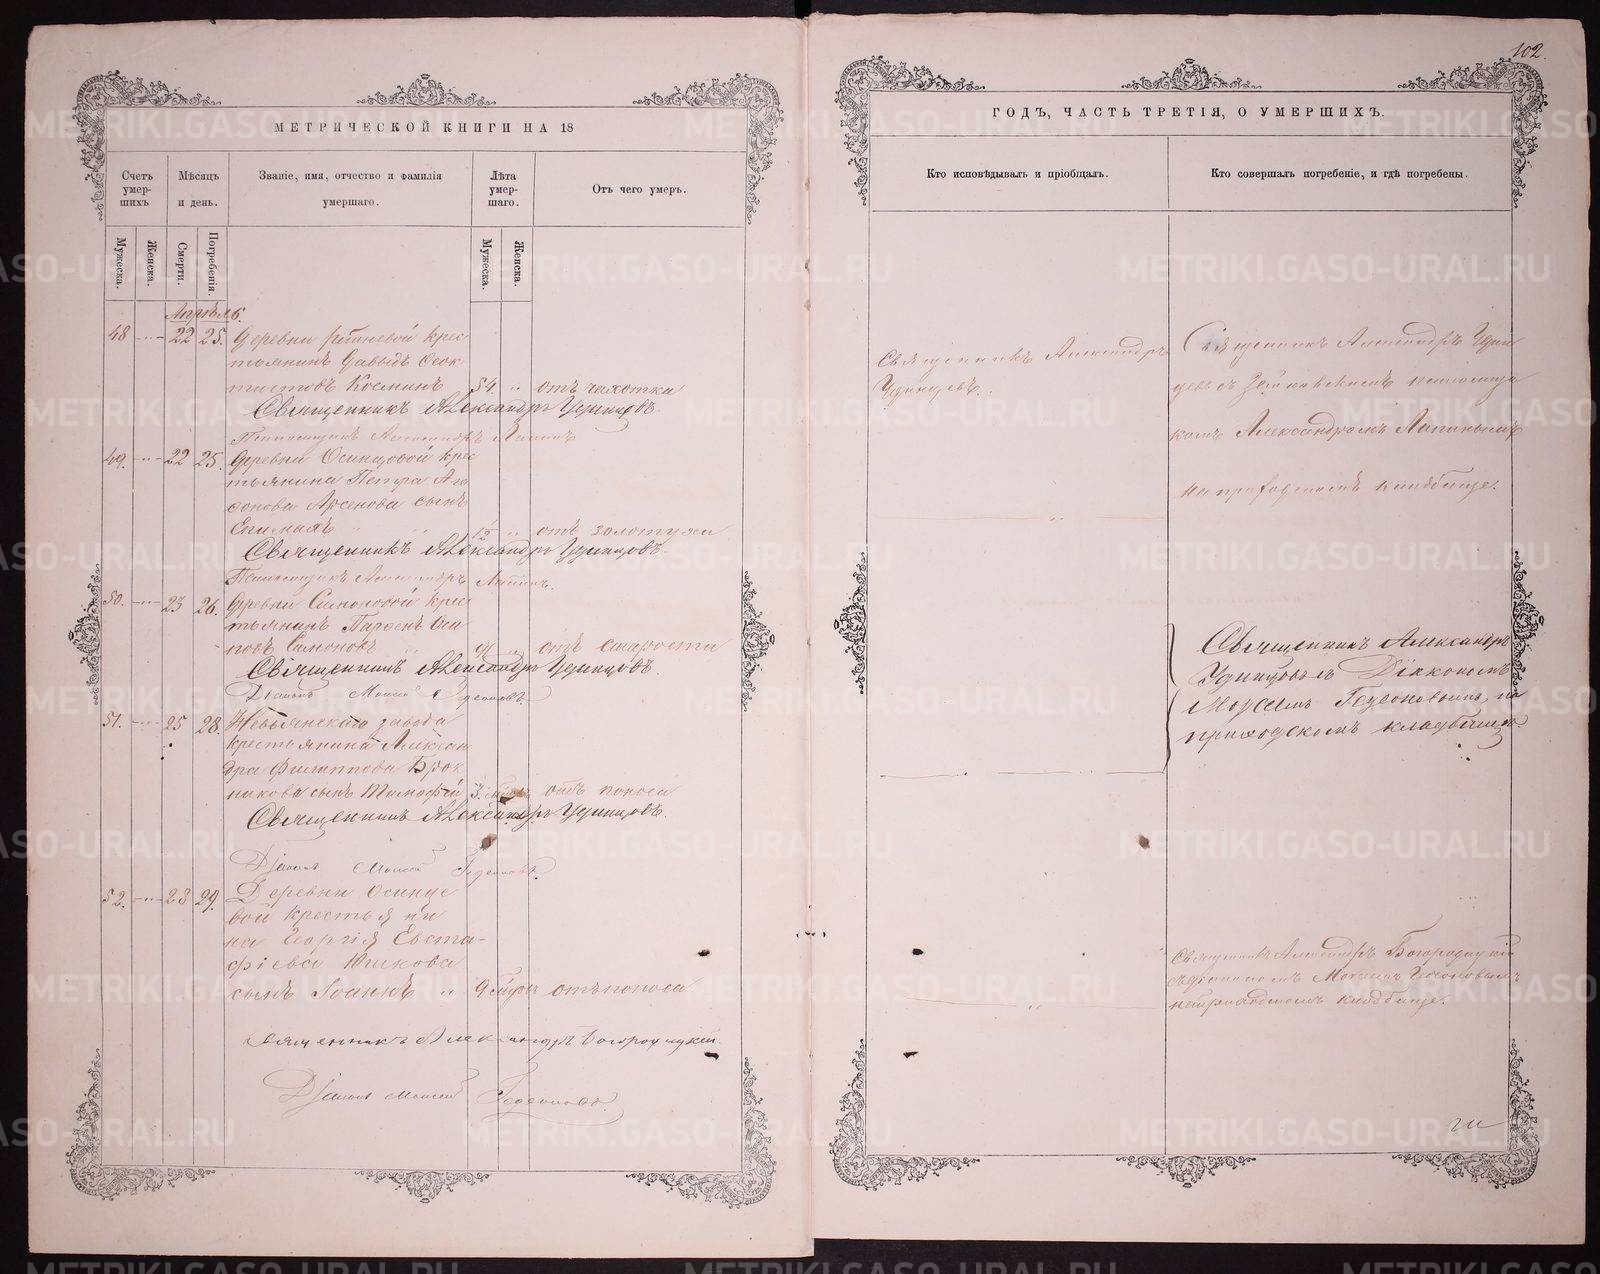 102.
МЕТРИЧЕСКОЙ КНИГИ НА 18
Счетъ умер-шихъ
Мѣсяцъ и день.
Званіе, имя, отчество и фамилія умершаго.
Лѣта умер-шаго.
Отъ чего умеръ.
Мужеска.
Женска.
Смерти.
Погребенія.
Мужеска.
Женска.
Апрѣль.
48 22 25. Деревни крес
тьянинъ Давыдъ
Косминъ 54 " отъ чахотки
Священникъ Александръ Удинцовъ.
Псаломщикъ Александръ Лапинъ
49. 22 25. Деревни Осинцовой крес
тьянина Петра Ага
фонова Арсенова сынъ
1/2 " отъ золотухи
Священникъ Александръ Удинцовъ.
Псаломщикъ Александръ Лапинъ.
50. 23 26. Деревни Симоновой крес
тьянинъ Парѳенъ Оси
повъ Симоновъ " отъ старости
Священникъ Александръ Удинцовъ.
Діаконъ Моисей Гедеоновъ.
51. 25 28. Невьянскаго завода
крестьянина Алексан
дра Филиппова
сынъ Тимофей 3. отъ поноса
Священникъ Александръ Удинцовъ.
Діаконъ Моисей Гедеоновъ.
52. 28 29. Деревни Осинце
вой крестьяни
на Георгія Евста-
фіева
сынъ Іоаннъ " 9 отъ поноса
Священникъ Александръ Богородицкій.
Діаконъ Моисей Гедеоновъ.
ГОДЪ, ЧАСТЬ ТРЕТІЯ, О УМЕРШИХЪ.
Кто исповѣдывалъ и пріобщалъ.
Кто совершалъ погребеніе, и гдѣ погребены.
Священникъ Александръ
Удинцевъ.
Священникъ Александръ Удин
цевъ съ псаломщи
комъ Александромъ Лапинымъ
на приходскомъ кладбище.
Священникъ Александръ
Удинцовъ съ Діакономъ
Моисеемъ Гедеоновымъ, на
приходскомъ кладбищѣ.
Священникъ Александръ Богородицкій
съ діакономъ Моисеем Гедеоновымъ
на приходскомъ кладбище.
METRIKI.GASO-URAL.RU